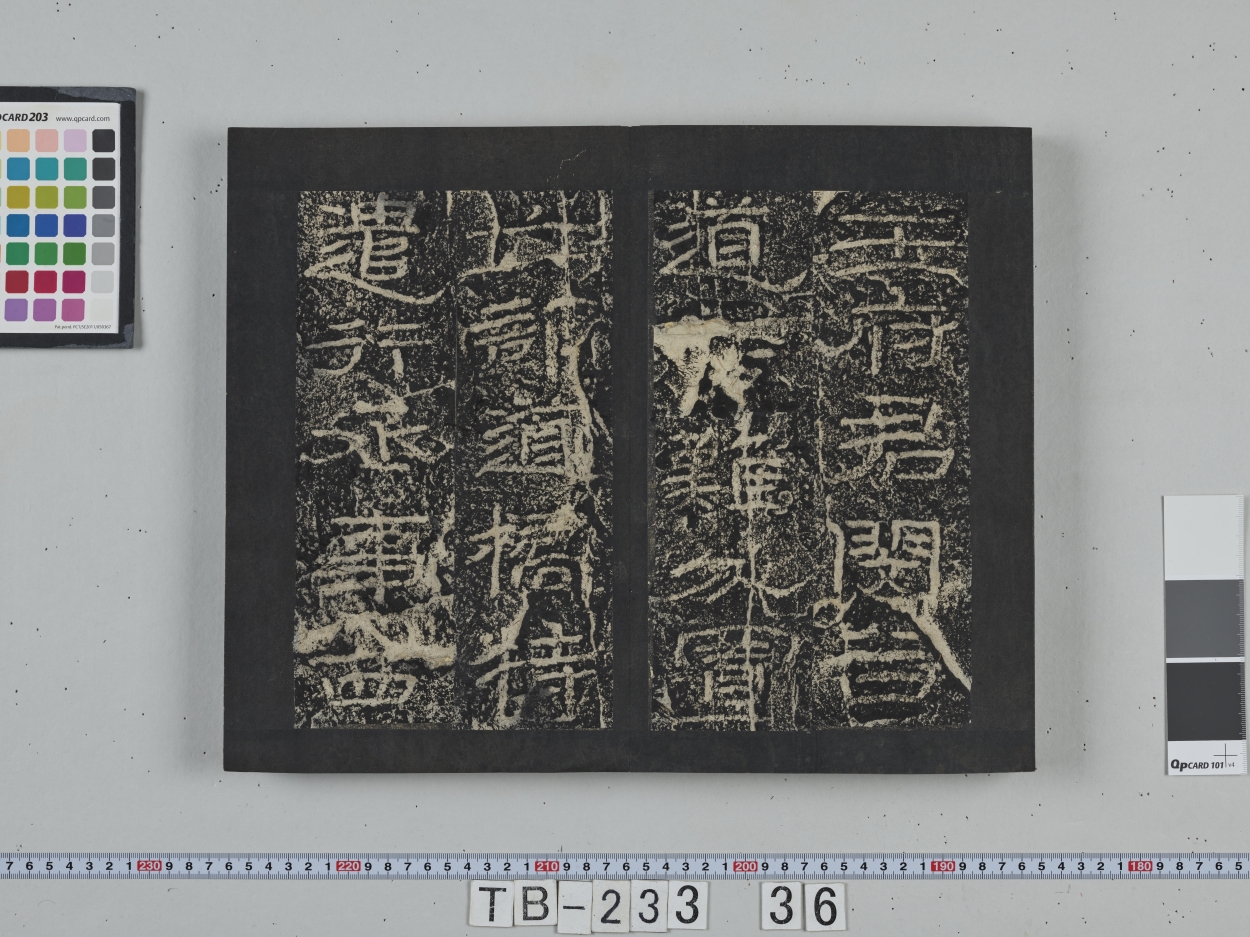 王府君閔谷
道危難分置
六部道橋特
遣行丞事西
PCARD203 www.qpcard.com
QpCARD 101 v4
7 6 5 4 3 2 1 230 9 8 7 6 5 4 3 2 1 220 9 8 7 6 5 4 3 2 1 210 9 8 7 6 5 4 3 2 1 200 9 8 7 6 5 4 3 2 1 190 9 8 7 6 5 4 3 2 1 180 9 8 7 6 5
TB-233 36